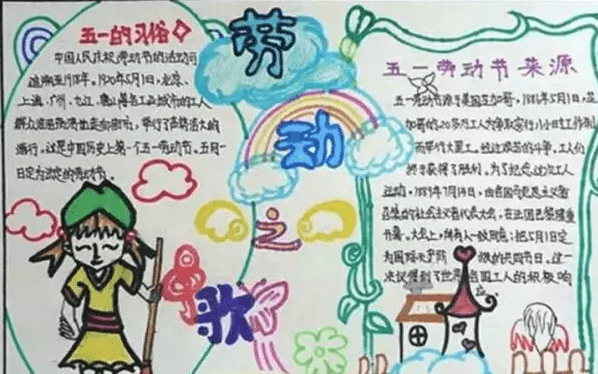 五一的习俗
中国人民庆祝劳动节的活动可
追溯至1918年。1920年5月1日,北京、
上海、广州、九江、唐山等各工业城市的工人
群众浩浩荡荡地走向街市,举行了声势浩大的
游行,这是中国历史上第一个五一劳动节。五月一
日定为法定的劳动节。
劳
动
之
歌
五一劳动节来源
五一劳动节源于美国芝加哥,1886年5月1日,芝
加哥的20多万工人为争取实行八小时工作制
而举行大罢工。经过艰苦的斗争,工人们
终于获得了胜利。为了纪念这次工人
运动,1889年7月14日,由各国马克思主义者
召集的社会主义者代表大会,在法国巴黎隆重
开幕。大会上,与会人一致同意:把5月1日定
为国际无产阶级的共同节日。这一
决议得到了世界各国工人的积极响
应